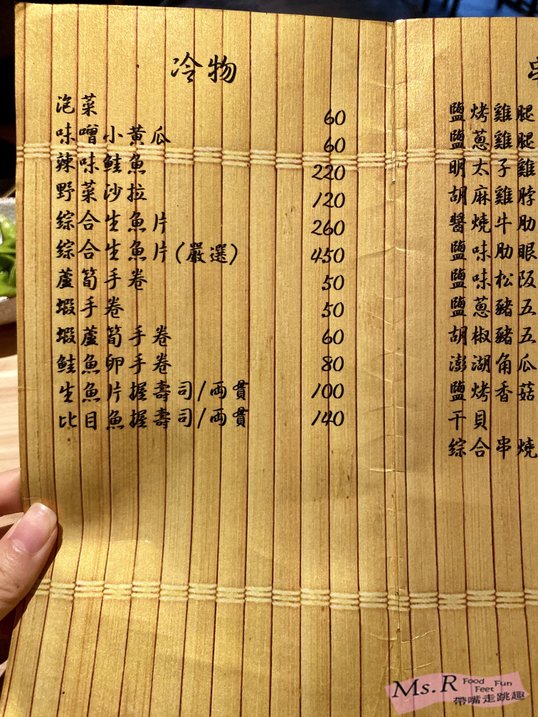 冷物
泡菜 60
味噌小黃瓜 60
辣味鮭魚 220
野菜沙拉 120
綜合生魚片 260
綜合生魚片(嚴選) 450
蘆筍手卷 50
蝦手卷 50
蝦蘆筍手卷 60
鮭魚卵手卷 80
生魚片握壽司/両貫 100
比目魚握壽司/両貫 140
鹽烤雞腿
鹽蔥雞腿
明太子雞
胡麻雞脖
醬燒牛肋
鹽味肋眼
鹽味松阪
鹽蔥豬五
胡椒豬五
澎湖角瓜
鹽烤香菇
干貝
綜合串燒
Ms.R Food Feet Fun
帶嘴走跳趣